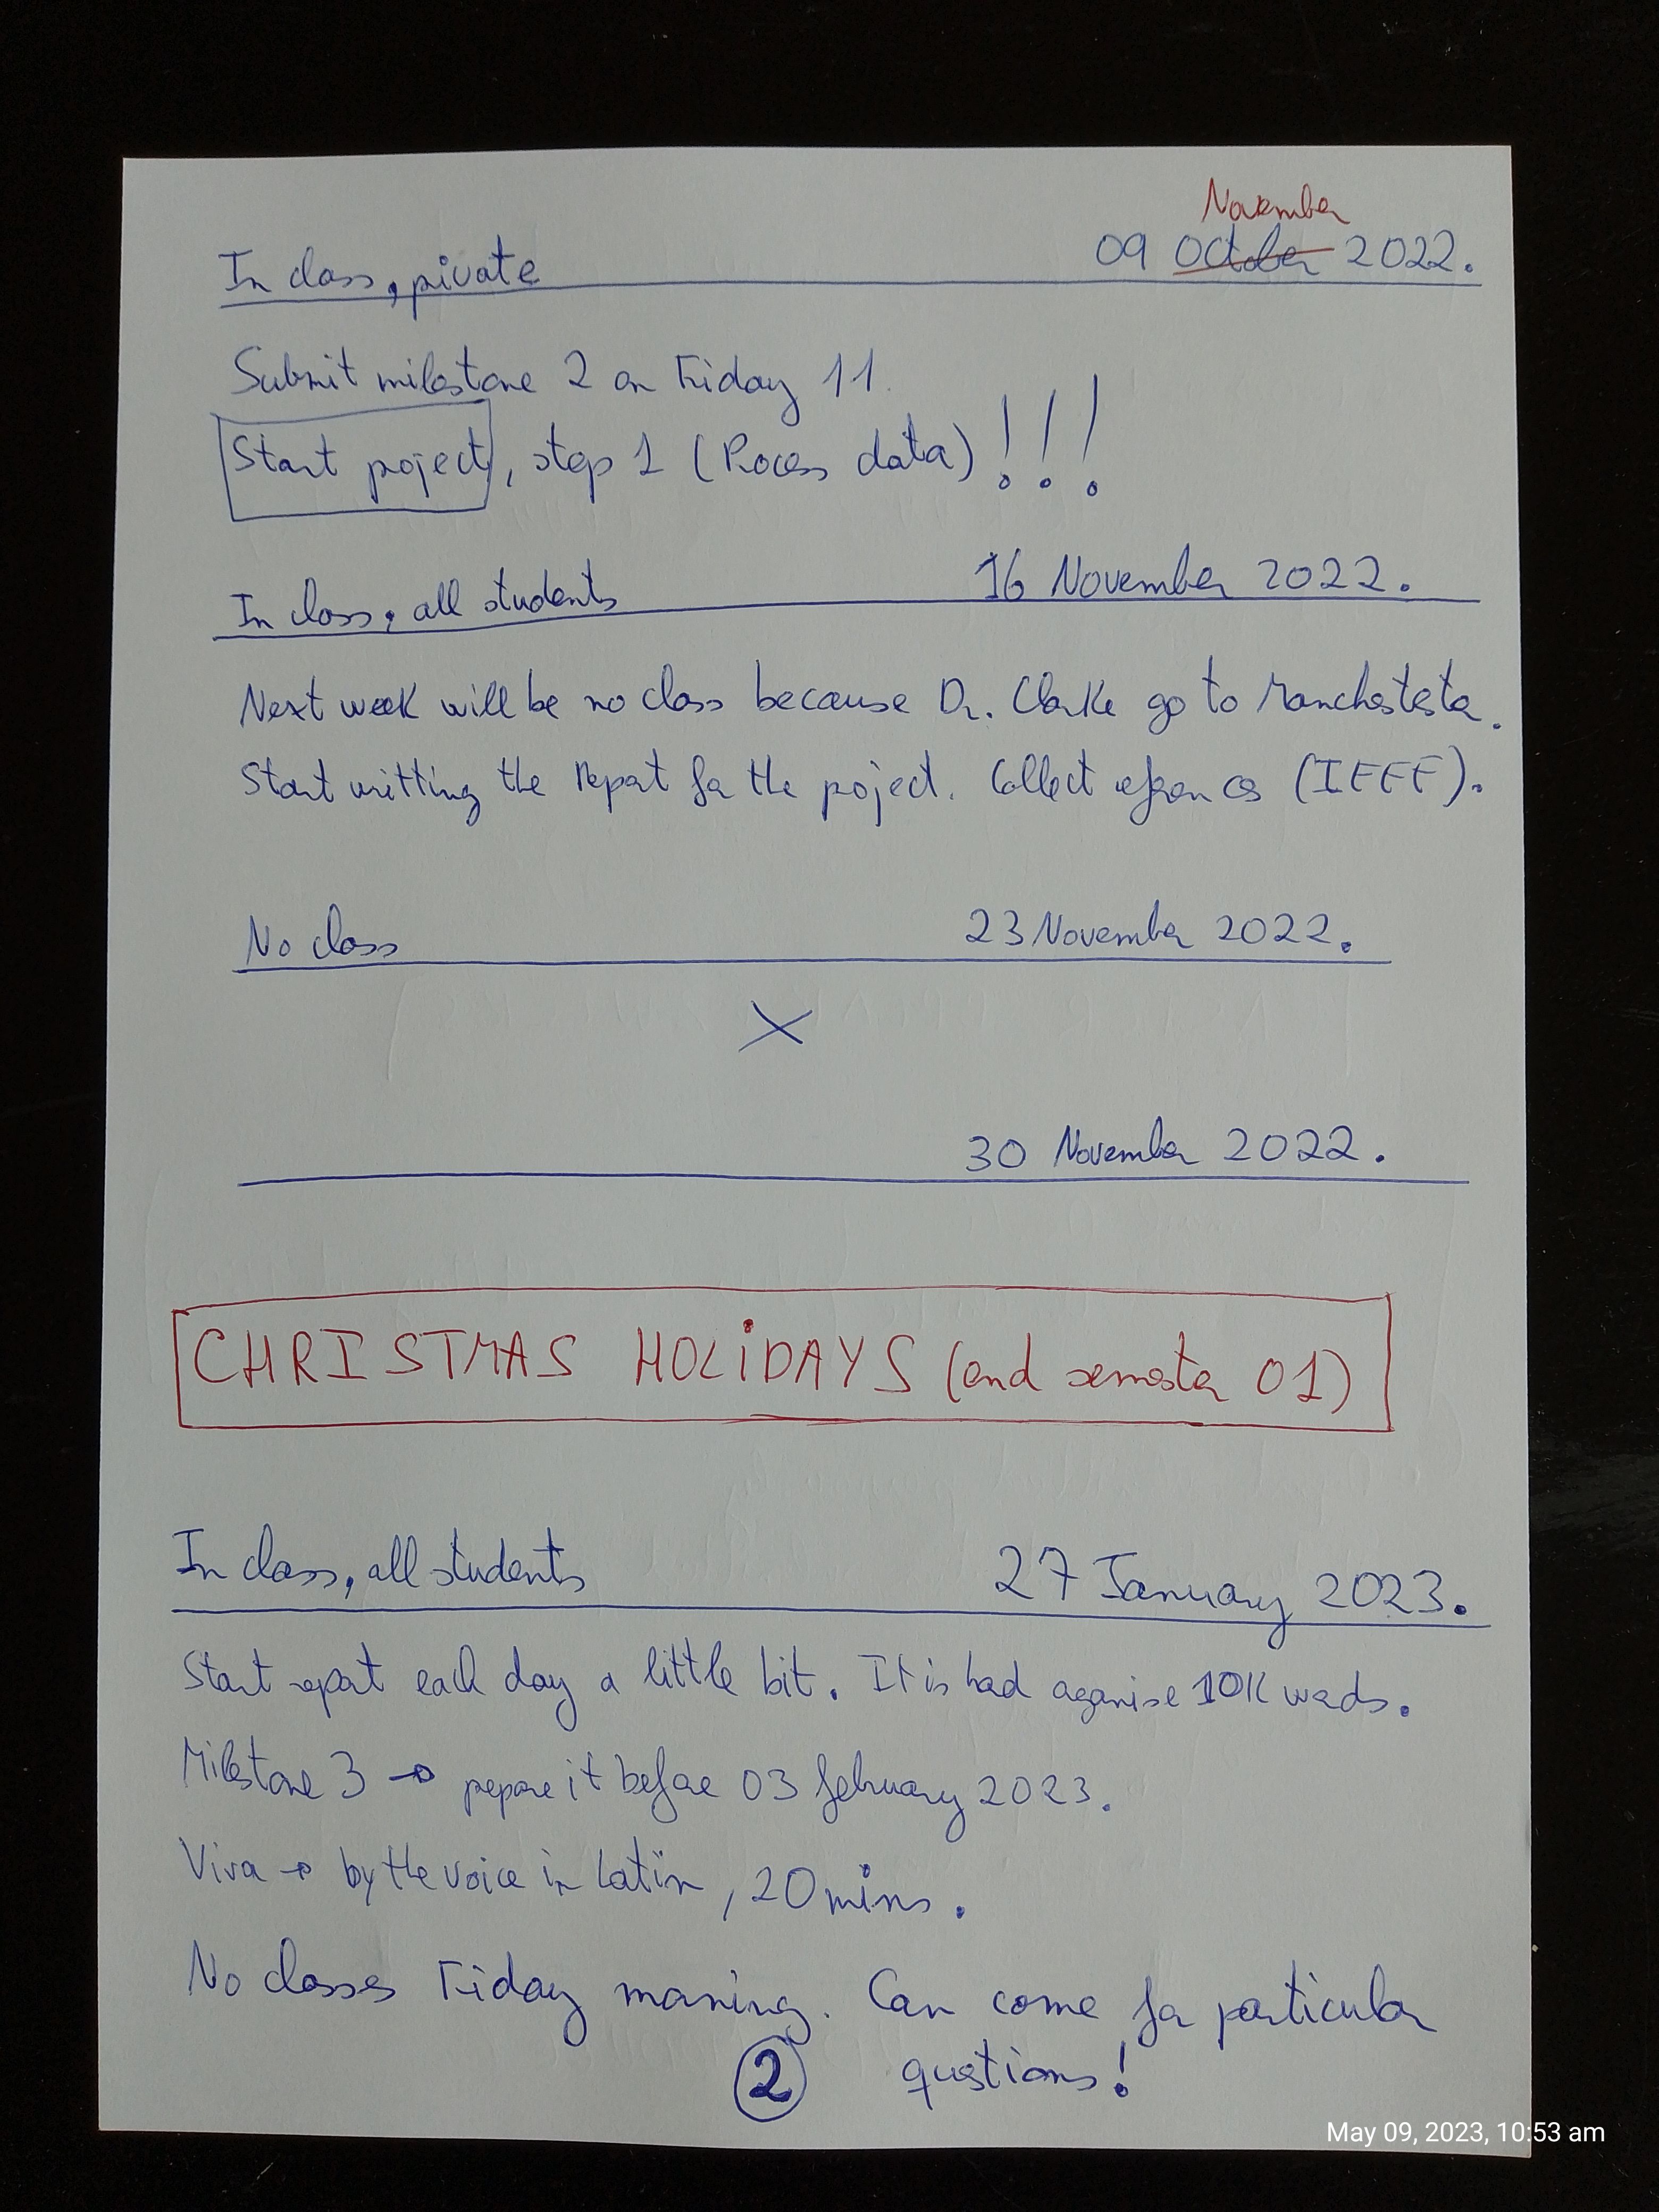 November
09 October 2022.
In class, private
Submit milestone 2 on Friday 11.
Start project, step 1 (Process data)!!!
In class, all students 16 November 2022.
Next week will be no class because Dr. Clarke go to Manchestester.
Start writting the report for the project. Collect references (IEEE).
No class 23 November 2022.
X
30 November 2022.
CHRISTMAS HOLiDAYS (end semester 01)
In class, all students 27 January 2023.
Start report each day a little bit. It is hard organise 10K words.
Milestone 3 → prepare it before 03 february 2023.
Viva → by the voice in Latin, 20 mins.
No classes Friday morning. Can come for particular
questions!
2
May 09, 2023, 10:53 am